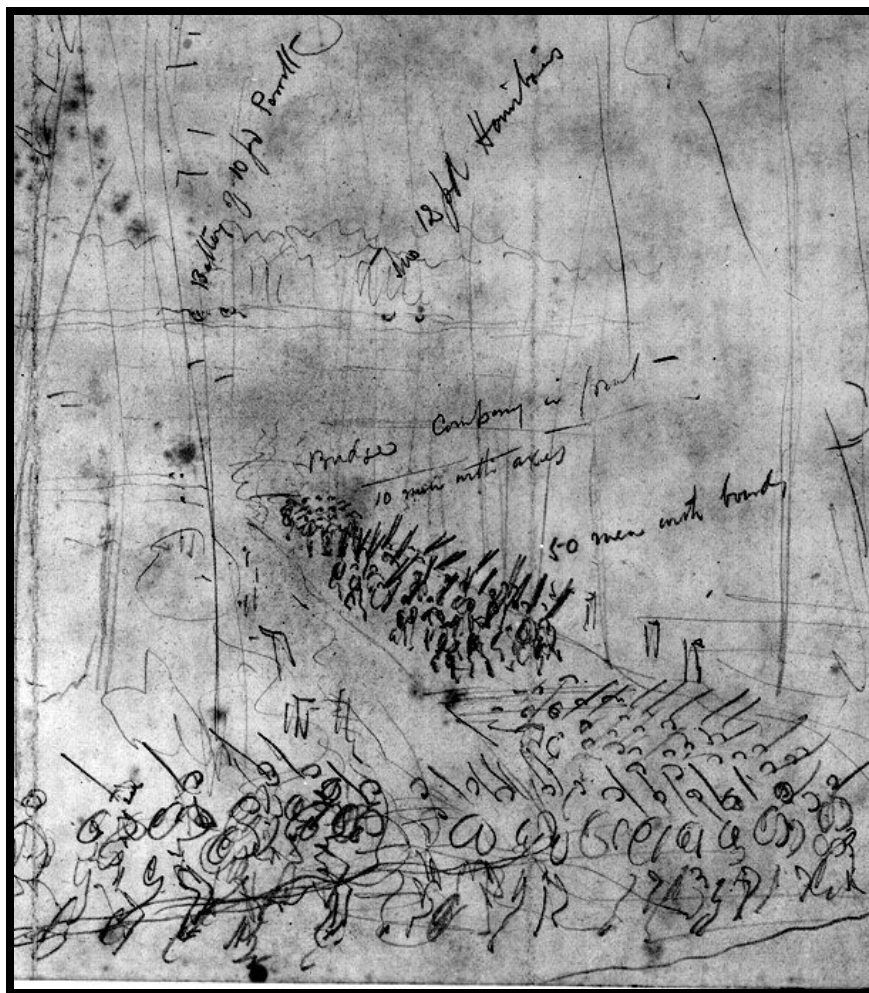 Battery of 10 pd Parrotts
two 12 pd Howitzers
Bridge Company in front —
10 men with axes
50 men with boards